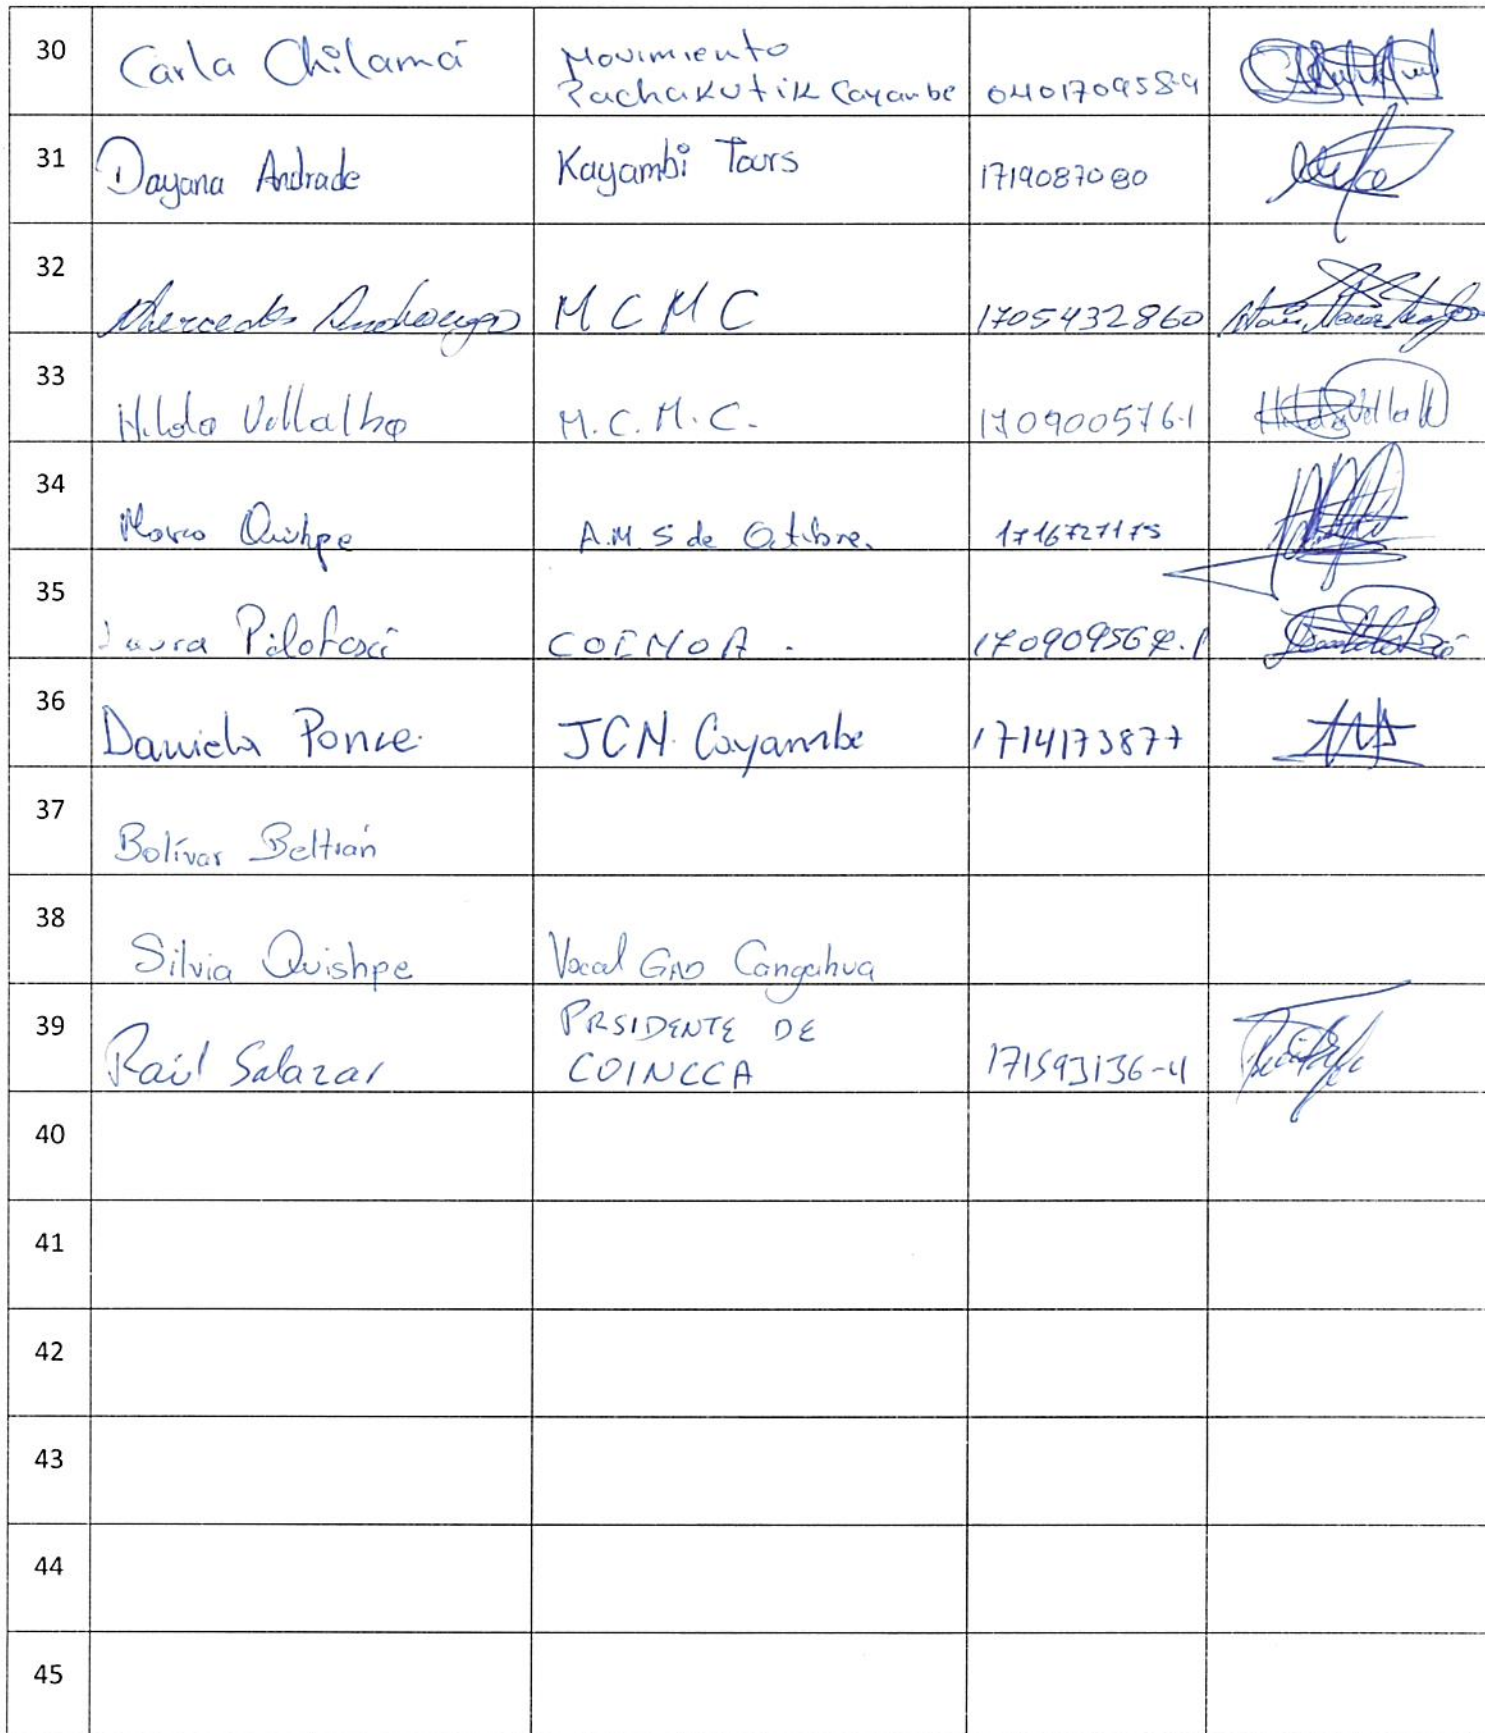 30 Carla Chilamá Movimiento
Pachakutik Cayambe 040170958-9
31 Dayana Andrade Kayambi Tours 1719087080
32 Mercedes Andrango M C M C 1705432860
33 Hilda Villalba M.C.M.C. 170900576-1
34 Marco Quishpe A.M 5 de Octubre. 1716727175
35 Laura Pilataxi COINOA .
36 Daniela Ponce. JCM Cayambe 1714173877
37 Bolívar Beltrán
38 Silvia Quishpe Vocal GAD Cangahua
39 Raúl Salazar PRSIDENTE DE
COINCCA 171593136-4
40
41
42
43
44
45